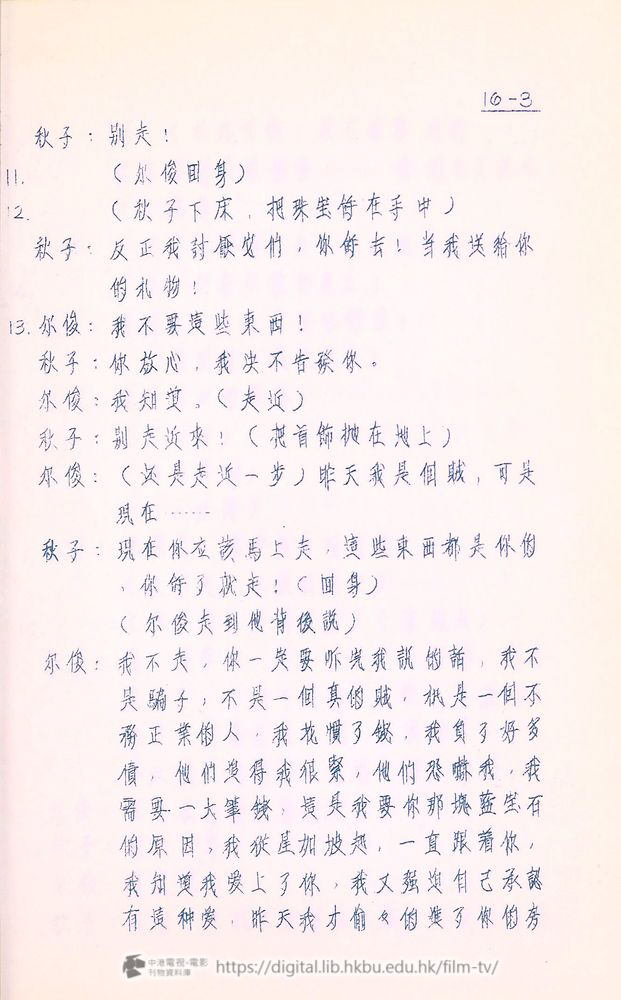 16-3
秋子：别走！
11. （尔俊回身）
12. （秋子下床，把珠宝拿在手中）
秋子：反正我討厭它们，你拿去！当我送给你
的礼物！
13. 尔俊：我不要這些東西！
秋子：你放心，我决不告發你。
尔俊：我知道。（走近）
秋子：别走近來！（把首飾抛在地上）
尔俊：（还是走近一步）昨天我是個賊，可是
現在……
秋子：現在你应該馬上走，這些東西都是你的
，你拿了就走！（回身）
（尔俊走到他背後説）
尔俊：我不走，你一定要听完我説的話，我不
是騙子，不是一個真的賊，祇是一個不
務正業的人，我花慣了錢，我負了好多
債，他們逼得我很緊，他們恐嚇我，我
需要一大筆錢，這是我要你那塊藍宝石
的原因，我從星加坡起，一直跟着你，
我知道我爱上了你，我又强迫自己承認
有這种爱，昨天我才偷々的進了你的房
中港電視·電影
刊物資料庫
https://digital.lib.hkbu.edu.hk/film-tv/